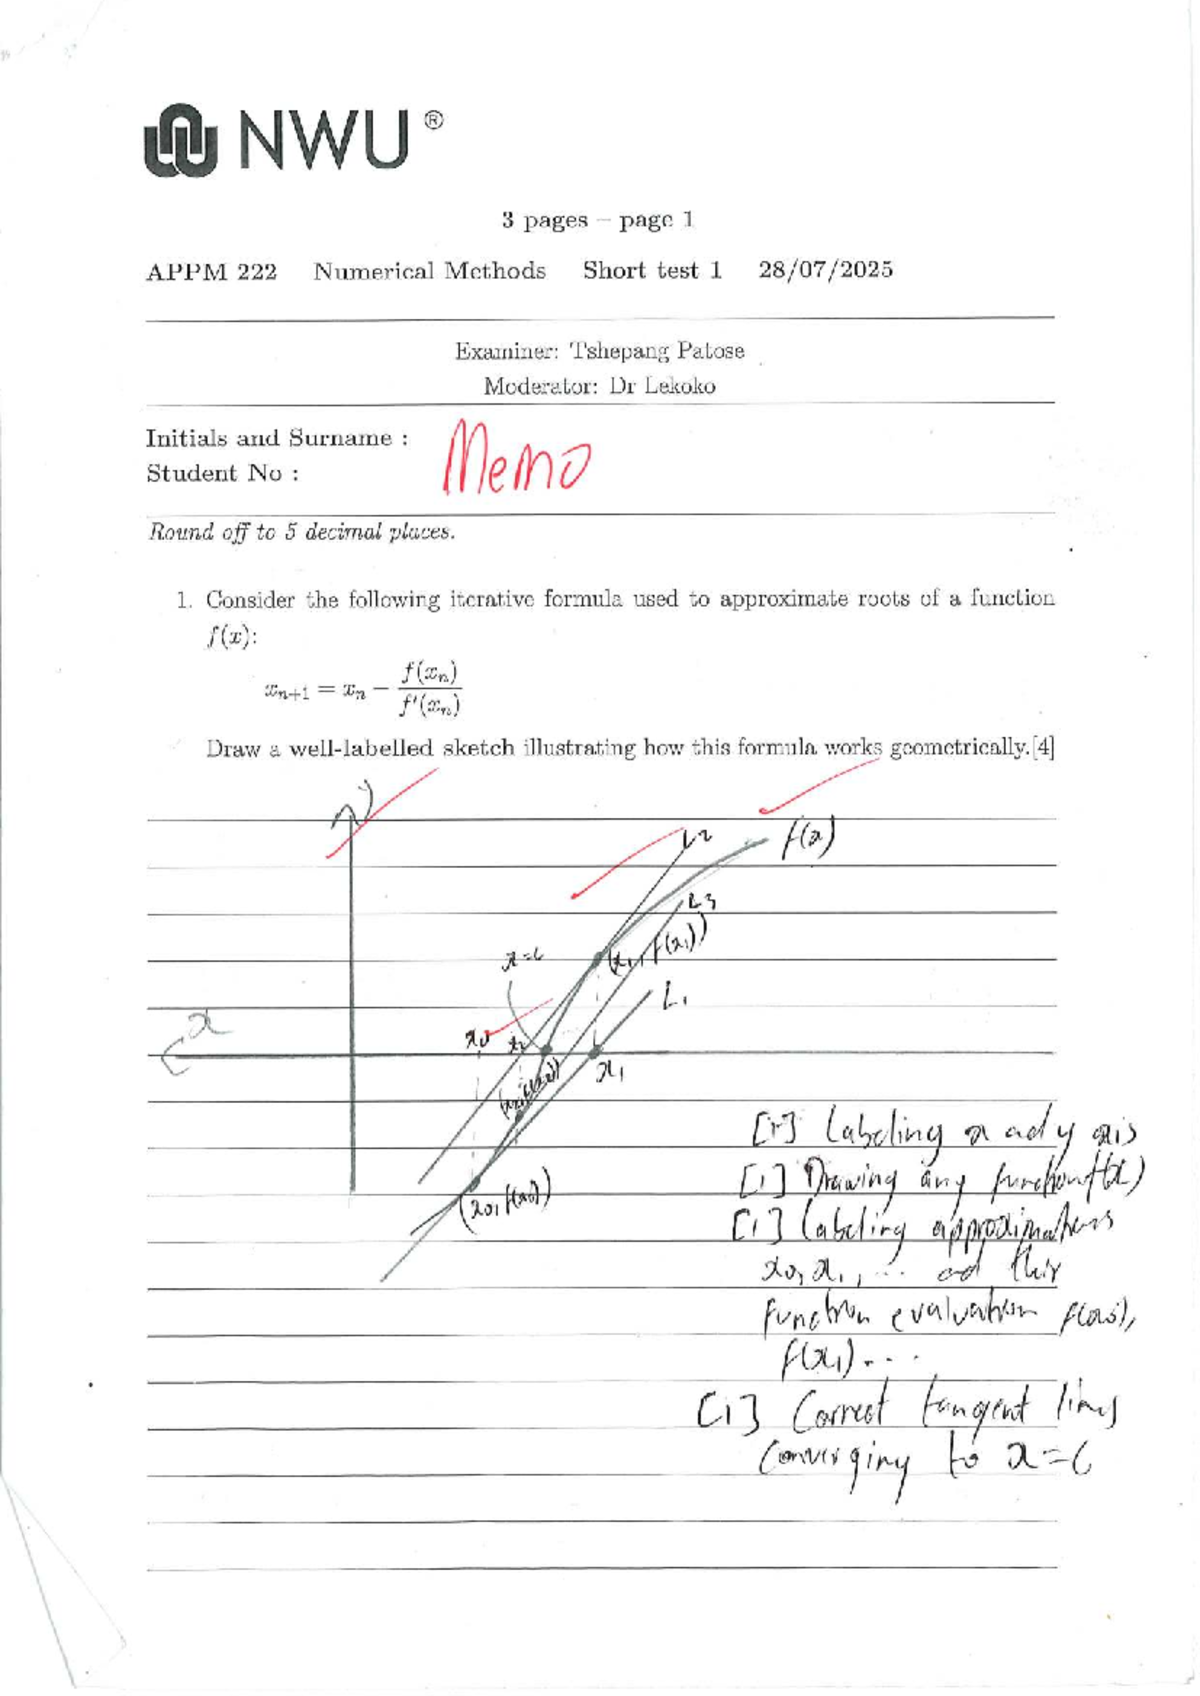 NWU®
3 pages – page 1
APPM 222 Numerical Methods Short test 1 28/07/2025
Examiner: Tshepang Patose
Moderator: Dr Lekoko
Initials and Surname :
Memo
Student No :
Round off to 5 decimal places.
1. Consider the following iterative formula used to approximate roots of a function
f(x):
xₙ₊₁ = xₙ − f(xₙ)/f′(xₙ)
Draw a well-labelled sketch illustrating how this formula works geometrically.[4]
y
L2
f(x)
L3
(x₁, f(x₁))
x=c
L₁
x
x₀
x₂
x₁
(x₂, f(x₂))
(x₀, f(x₀))
[1] Labeling x and y axis
[1] Drawing any function f(x)
[1] Labeling approximations
x₀, x₁, ... and their
function evaluation f(x₀),
f(x₁)...
[1] Correct tangent lines
converging to x=c